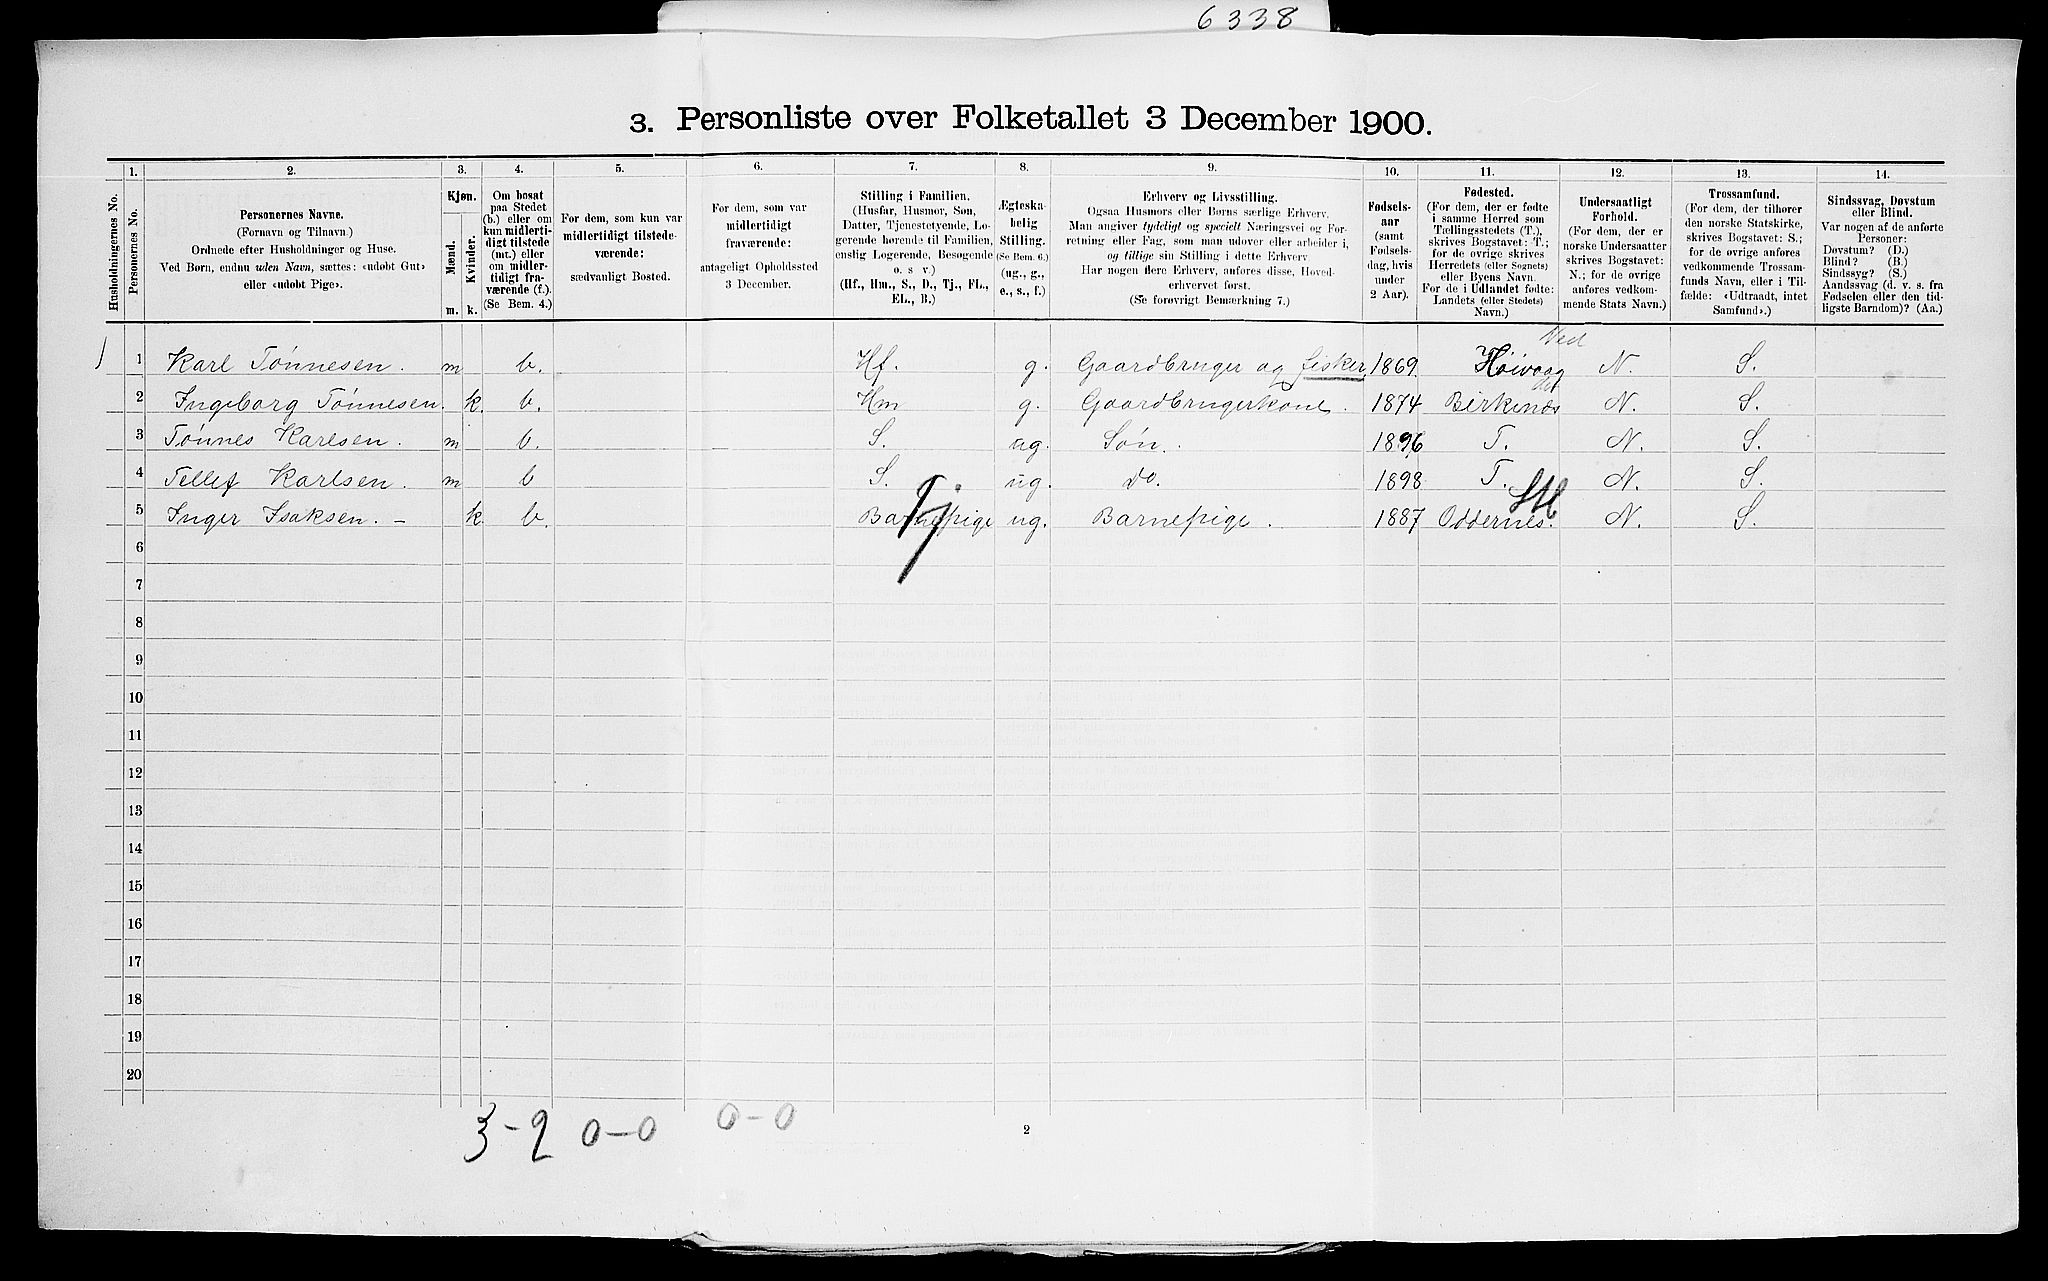 6338
3. Personliste over Folketallet 3 December 1900.
Husholdningernes No.
1.
Personernes No.
2.
Personernes Navne.
(Fornavn og Tilnavn.)
Ordnede efter Husholdninger og Huse.
Ved Børn, endnu uden Navn, sættes: «udøbt Gut»
eller «udøbt Pige».
3.
Kjøn.
Mænd.
Kvinder.
m. k.
4.
Om bosat
paa Stedet
(b.) eller om
kun midlerti-
digt tilstede
(mt.) eller
om midler-
tidigt fra-
værende (f.).
(Se Bem. 4.)
5.
For dem, som kun var
midlertidigt tilstede-
værende:
sædvanligt Bosted.
6.
For dem, som var
midlertidigt
fraværende:
antageligt Opholdssted
3 December.
7.
Stilling i Familien.
(Husfar, Husmor, Søn,
Datter, Tjenestetyende, Lo-
gerende hørende til Familien,
enslig Logerende, Besøgende
o. s v.)
(Hf., Hm., S., D., Tj., FL.,
EL., B.)
8.
Ægteska-
belig
Stilling.
(Se Bem. 6.)
(ug., g.,
e., s., f.)
9.
Erhverv og Livsstilling.
Ogsaa Husmors eller Børns særlige Erhverv.
Man angiver tydeligt og specielt Næringsvei og For-
retning eller Fag, som man udøver eller arbeider i,
og tillige sin Stilling i dette Erhverv
Har nogen flere Erhverv, anføres disse, Hoved-
erhvervet først.
(Se forøvrigt Bemærkning 7.)
10.
Fødsels-
aar
(samt
Fødsels-
dag, hvis
under
2 Aar).
11.
Fødested.
(For dem, der er fødte
i samme Herred som
Tællingsstedets (T.),
skrives Bogstavet: T.;
for de øvrige skrives
Herredets (eller Sognets)
eller Byens Navn.
For de i Udlandet fødte:
Landets (eller Stedets)
Navn.)
12.
Undersaatligt
Forhold.
(For dem, der er
norske Undersaatter
skrives Bogstavet:
N.; for de øvrige
anføres vedkom-
mende Stats Navn.)
13.
Trossamfund.
(For dem, der tilhører
den norske Statskirke,
skrives Bogstavet: S.;
for de øvrige anføres
vedkommende Trossam-
funds Navn, eller i Til-
fælde: «Udtraadt, intet
Samfund».)
14.
Sindssvag, Døvstum
eller Blind.
Var nogen af de anførte
Personer:
Døvstum? (D.)
Blind? (B.)
Sindssyg? (S.)
Aandssvag (d. v. s. fra
Fødselen eller den tid-
ligste Barndom)? (Aa.)
Ned
1 1 Karl Tønnesen. m b. Hf. g. Gaardbruger og fisker. 1869 Høivaag N. S.
2 Ingeborg Tønnesen. k. b. Hm g. Gaardbrugerkone. 1874 Birkenæs N. S.
3 Tønnes Karlsen. m b. S. ug. Søn. 1896 T. N. S.
4 Tellef Karlsen. m b S. ug. do. 1898 T. N. S.
Tj
5 Inger Isaksen. – k. b. Barnepige ug. Barnepige. 1887 Oddernes. N. S.
6
7
8
9
10
11
12
13
14
15
16
17
18
19
20
3-2 0-0 0-0
2